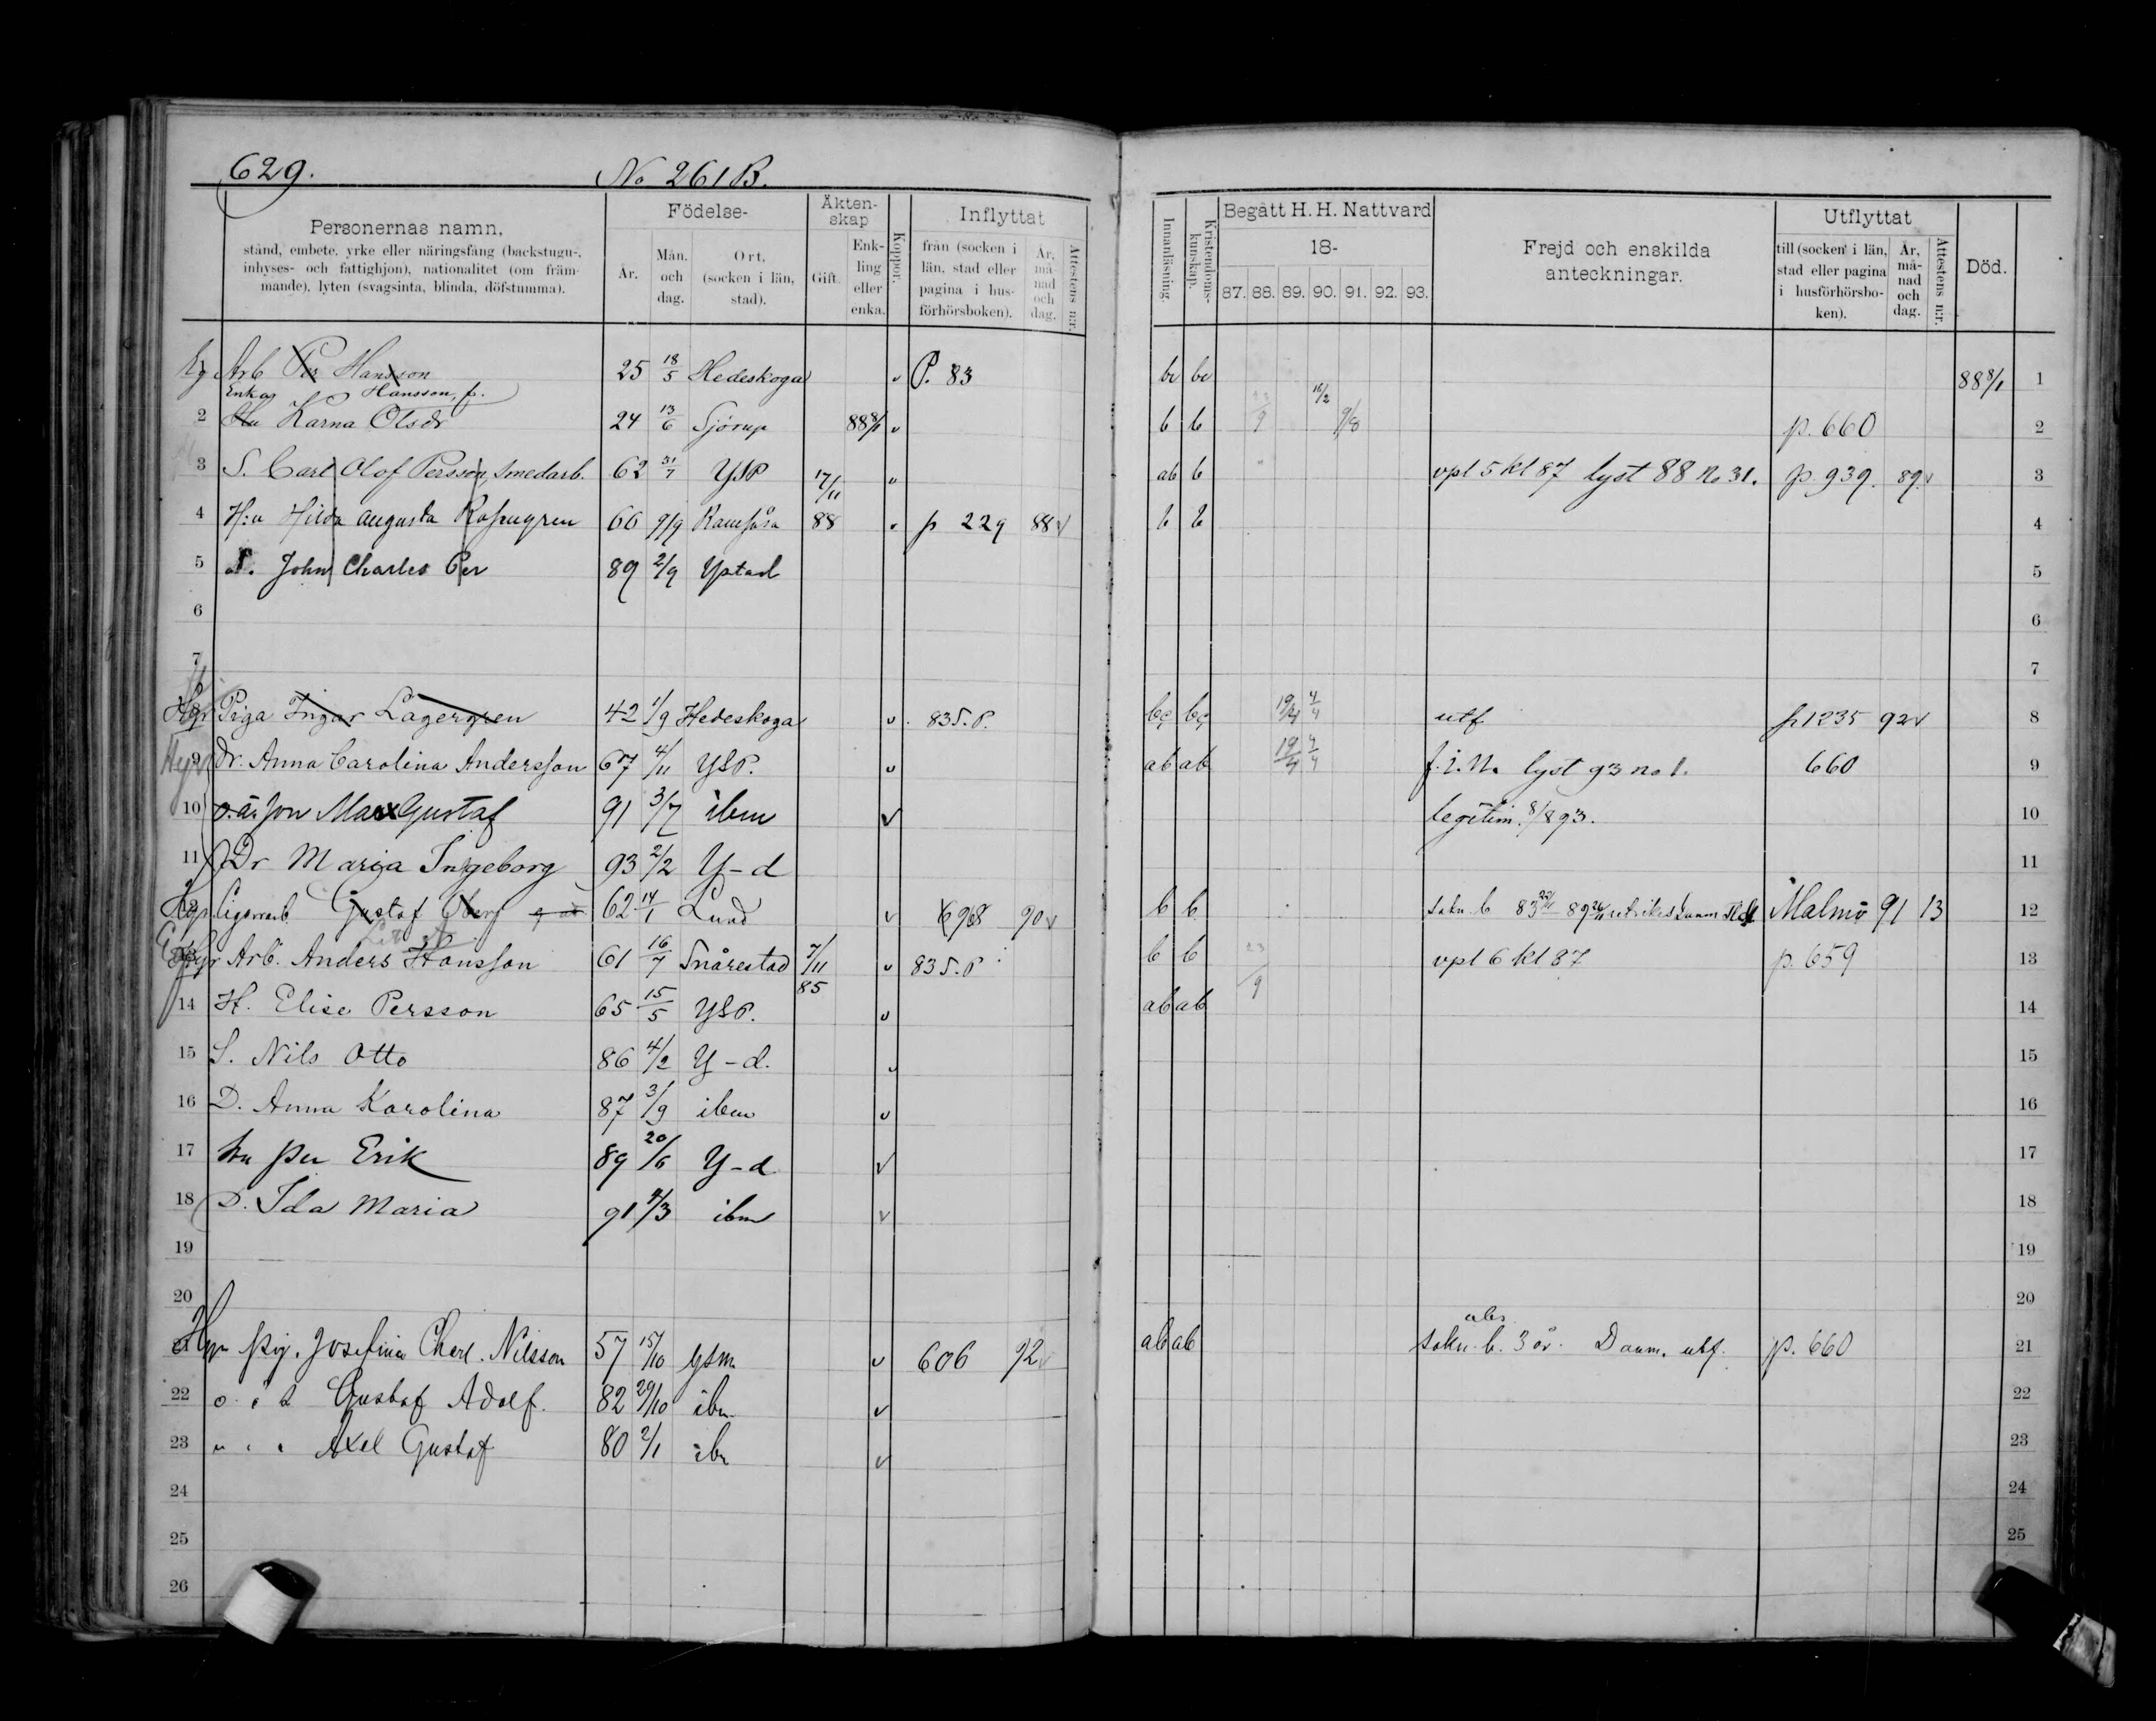 629.
No 261 B.
Personernas namn,
stånd, embete, yrke eller näringsfång (backstugu-,
inhyses- och fattighjon), nationalitet (om främ-
mande), lyten (svagsinta, blinda, döfstumma).
Födelse-
År.
Mån. och dag.
Ort, (socken i län, stad).
Äkten-skap
Gift.
Enk-ling eller enka.
Koppor.
Inflyttat
från (socken i län, stad eller pagina i hus-förhörsboken).
År, må-nad och dag.
Attestens n:r.
Innanläsning.
Kristendoms-kunskap.
Begått H. H. Nattvard
18-
87. 88. 89. 90. 91. 92. 93.
Frejd och enskilda
anteckningar.
Utflyttat
till (socken i län, stad eller pagina i husförhörsbo-ken).
År, må-nad och dag.
Attestens n:r.
Död.
Arb Per Hansson 25 18/5 Hedeskoga v P. 83 bc bc 88 8/1 1
Enka Hansson, f.
2 Hu Karna Olsdr 24 13/6 Sjörup 88 8/1 v b b 23/9 16/2 9/8 p. 660 2
3 S. Carl Olof Persson, Smedarb. 62 31/7 YSP 17/11 v ab b vpl 5 kl 87 lyst 88 no 31. p. 939. 89. v 3
4 H:u Hilda Augusta 66 9/9 Ramsåsa 88 v p 229 88 v b b 4
5 S. John Charles Per 89 2/9 Ystad 5
6 6
7 7
8 Piga Ingar Lagergren 42 1/9 Hedeskoga v 83 S.P. bc bc 19/4 4/4 utf p 1235 92 v 8
9 Dr. Anna Carolina Andersson 67 4/11 YSP. v ab ab 19/4 4/4 lyst 93 no 1. 660 9
10 o.ä. son Max Gustaf 91 3/7 ibm v legitim. 8/8 93. 10
11 Dr Maria Ingeborg 93 2/2 Y-d 11
12 Cigarrarb. Gustaf Öberg 62 14/1 Lund v 698 90 v b b Malmö 91 13 12
Hyr Arb. Anders Hansson 61 16/7 Snårestad 7/11 85 v 83 S.P b b 23/9 vpl 6 kl 87 p. 659 13
14 H. Elise Persson 65 15/5 YSP. v ab ab 14
15 S. Nils Otto 86 4/2 Y-d. v 15
16 D. Anna Karolina 87 3/9 ibm v 16
17 Per Erik 89 20/6 Y-d v 17
18 D. Ida Maria 91 4/3 ibm v 18
19 19
20 20
Hyr pig. Josefina Charl. Nilsson 57 15/10 YSM v 606 92 v ab ab sakn. b. 3 år. Danm. utf. p. 660 21
22 Gustaf Adolf. 82 29/10 ibm v 22
23 " " " Axel Gustaf 80 2/1 ibm v 23
24 24
25 25
26